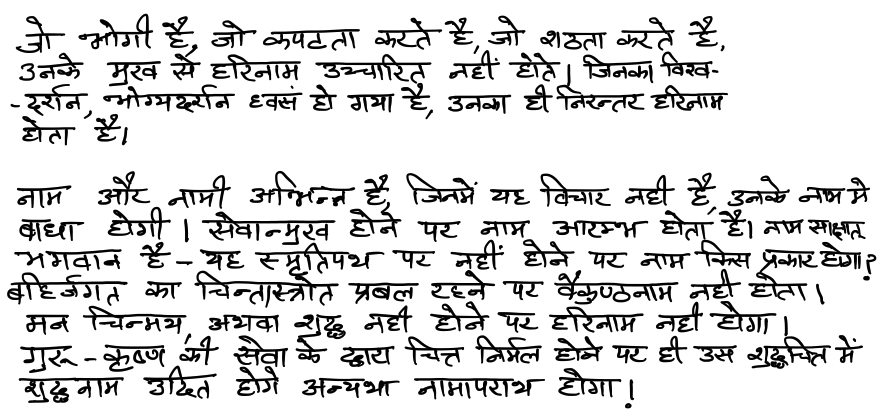 जो भोगी है, जो कपटता करते है, जो शठता करते है,
उनके मुख से हरिनाम उच्चारित नहीं होते। जिनका विश्व-
-दर्शन, भोग्यदर्शन ध्वसं हो गया है, उनका ही निरन्तर हरिनाम
होता है।
नाम और नामी अभिन्न है, जिनमें यह विचार नही है, उनके नाम मे
बाधा होगी। सेवान्मुख होने पर नाम आरम्भ होता है। नाम साक्षात्
भगवान है – यह स्मृतिपथ पर नहीं होने पर नाम किस प्रकार होगा?
बहिर्जगत का चिन्तास्त्रोत प्रबल रहने पर वैकुण्ठनाम नही होता।
मन चिन्मय, अथवा शुद्ध नही होने पर हरिनाम नही होगा।
गुरू – कृष्ण की सेवा के द्वारा चित्त निर्मल होने पर ही उस शुद्धचित्त में
शुद्धनाम उदित होगे अन्यथा नामापराध होगा!